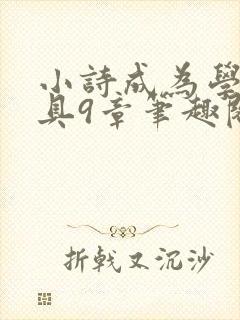 小詩成為學
具9章筆趣閱
折戟又沉沙